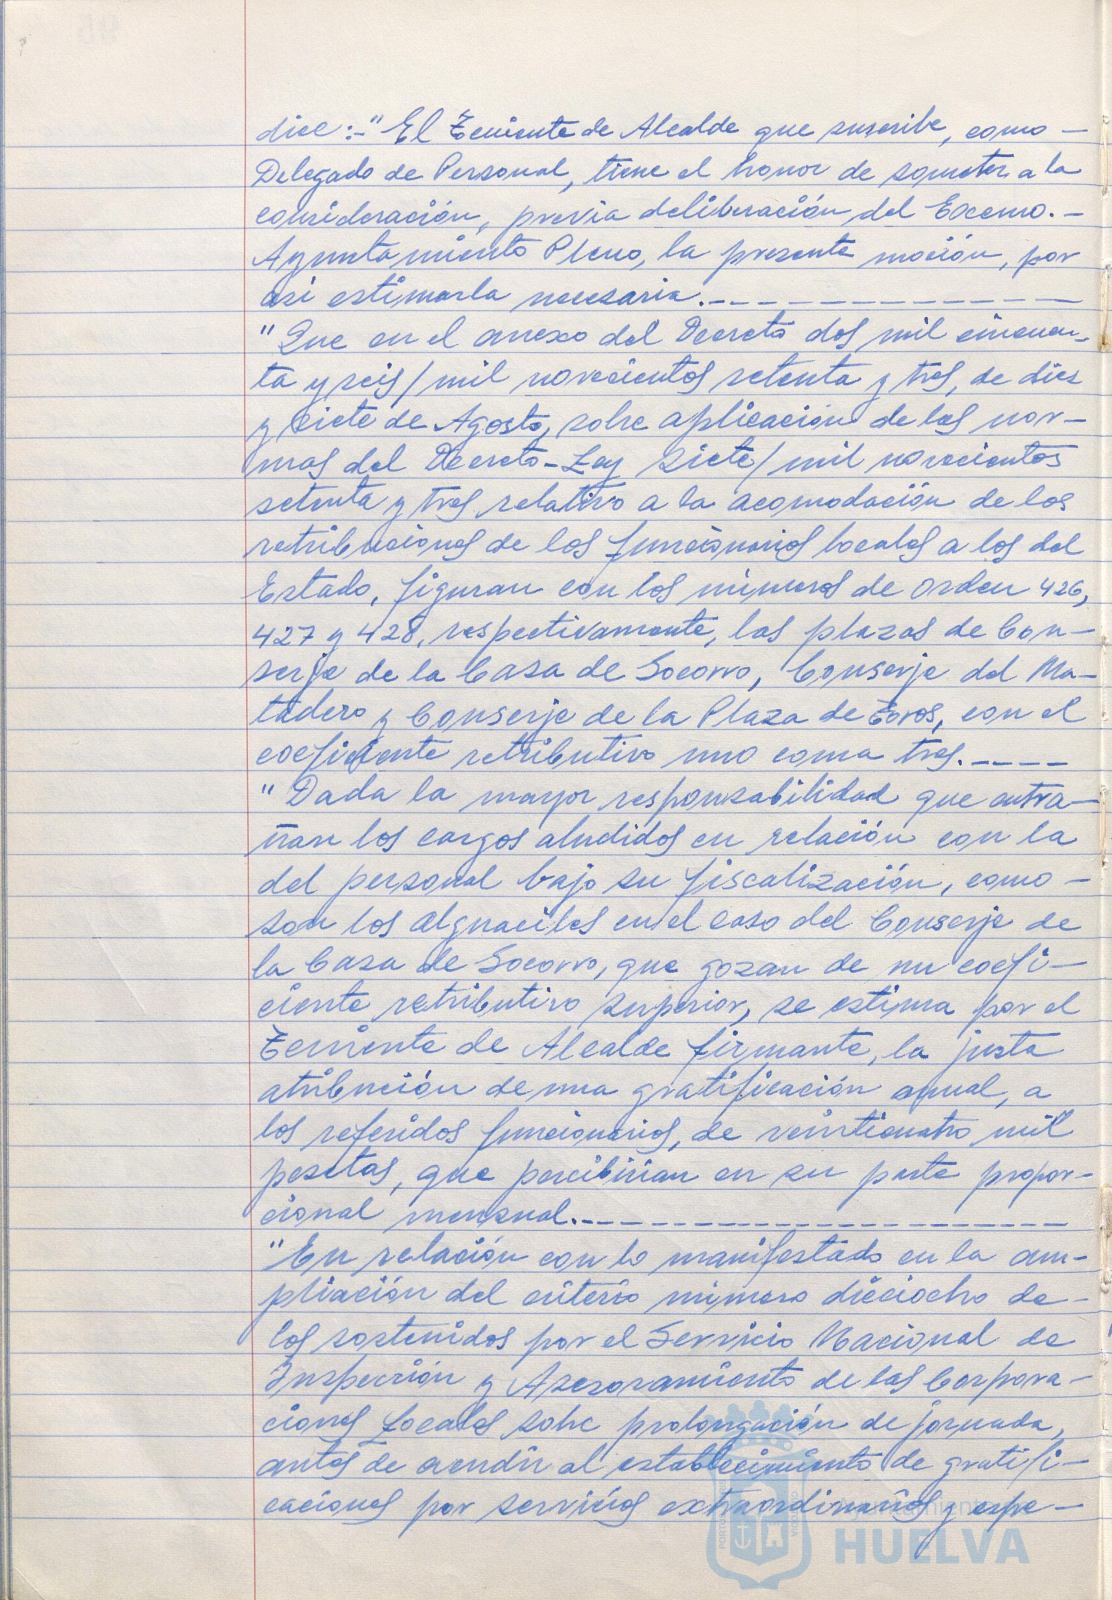 dice:-" El Teniente de Alcalde que suscribe, como -
Delegado de Personal, tiene el honor de someter a la
consideración, previa deliberación del Excmo. -
Ayuntamiento Pleno, la presente moción, por
así estimarla necesaria.- - - - - - - - - - -
"Que en el anexo del Decreto dos mil cincuen-
ta y seis/mil novecientos setenta y tres, de diez
y siete de Agosto, sobre aplicación de las nor-
mas del Decreto-Ley siete/mil novecientos
setenta y tres, relativo a la acomodación de los
retribuciones de los funcionarios locales a los del
Estado, figuran con los números de orden 426,
427 y 428, respectivamente, las plazas de Con-
serje de la Casa de Socorro, Conserje del Ma-
tadero y Conserje de la Plaza de Toros, con el
coeficiente retributivo uno coma tres.- - - -
"Dada la mayor responsabilidad que entra-
ñan los cargos aludidos en relación con la
del personal bajo su fiscalización, como -
son los alguaciles en el caso del Conserje de
la Casa de Socorro, que gozan de un coefi-
ciente retributivo superior, se estima por el
Teniente de Alcalde firmante, la justa
atribución de una gratificación anual, a
los referidos funcionarios, de veinticuatro mil
pesetas, que percibirían en su parte propor-
cional mensual.- - - - - - - - - - - - - -
"En relación con lo manifestado en la am-
pliación del criterio número dieciocho de -
los sostenidos por el Servicio Nacional de
Inspección y Asesoramiento de las Corpora-
ciones Locales sobre prolongación de jornada,
antes de acudir al establecimiento de gratifi-
caciones por servicios extraordinarios y espe-
Ayuntamiento
HUELVA